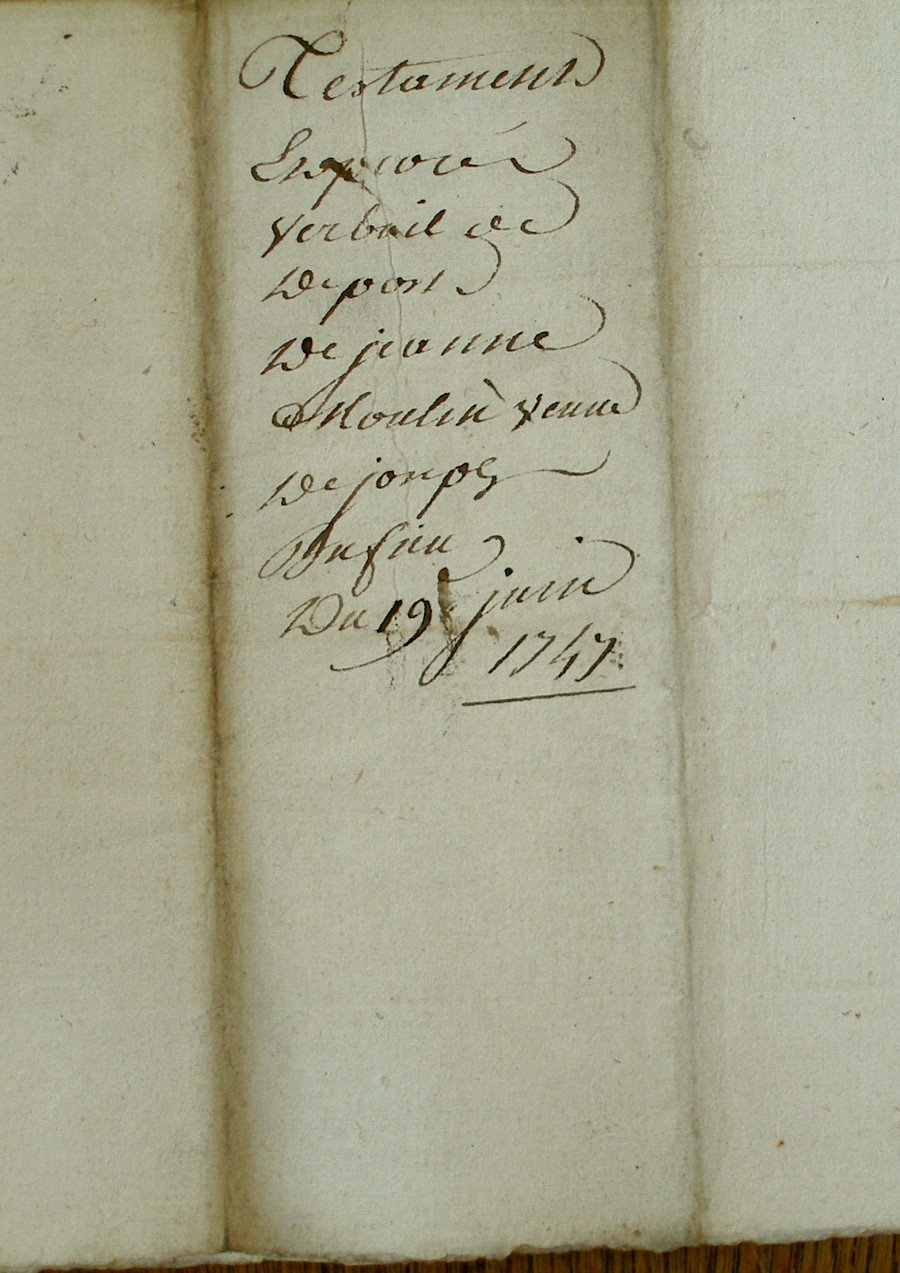 Testament
Et procé
verbail de
Depost
De jeanne
Moulin veuve
De joseph
Dufieu
Du 19e juin
1747